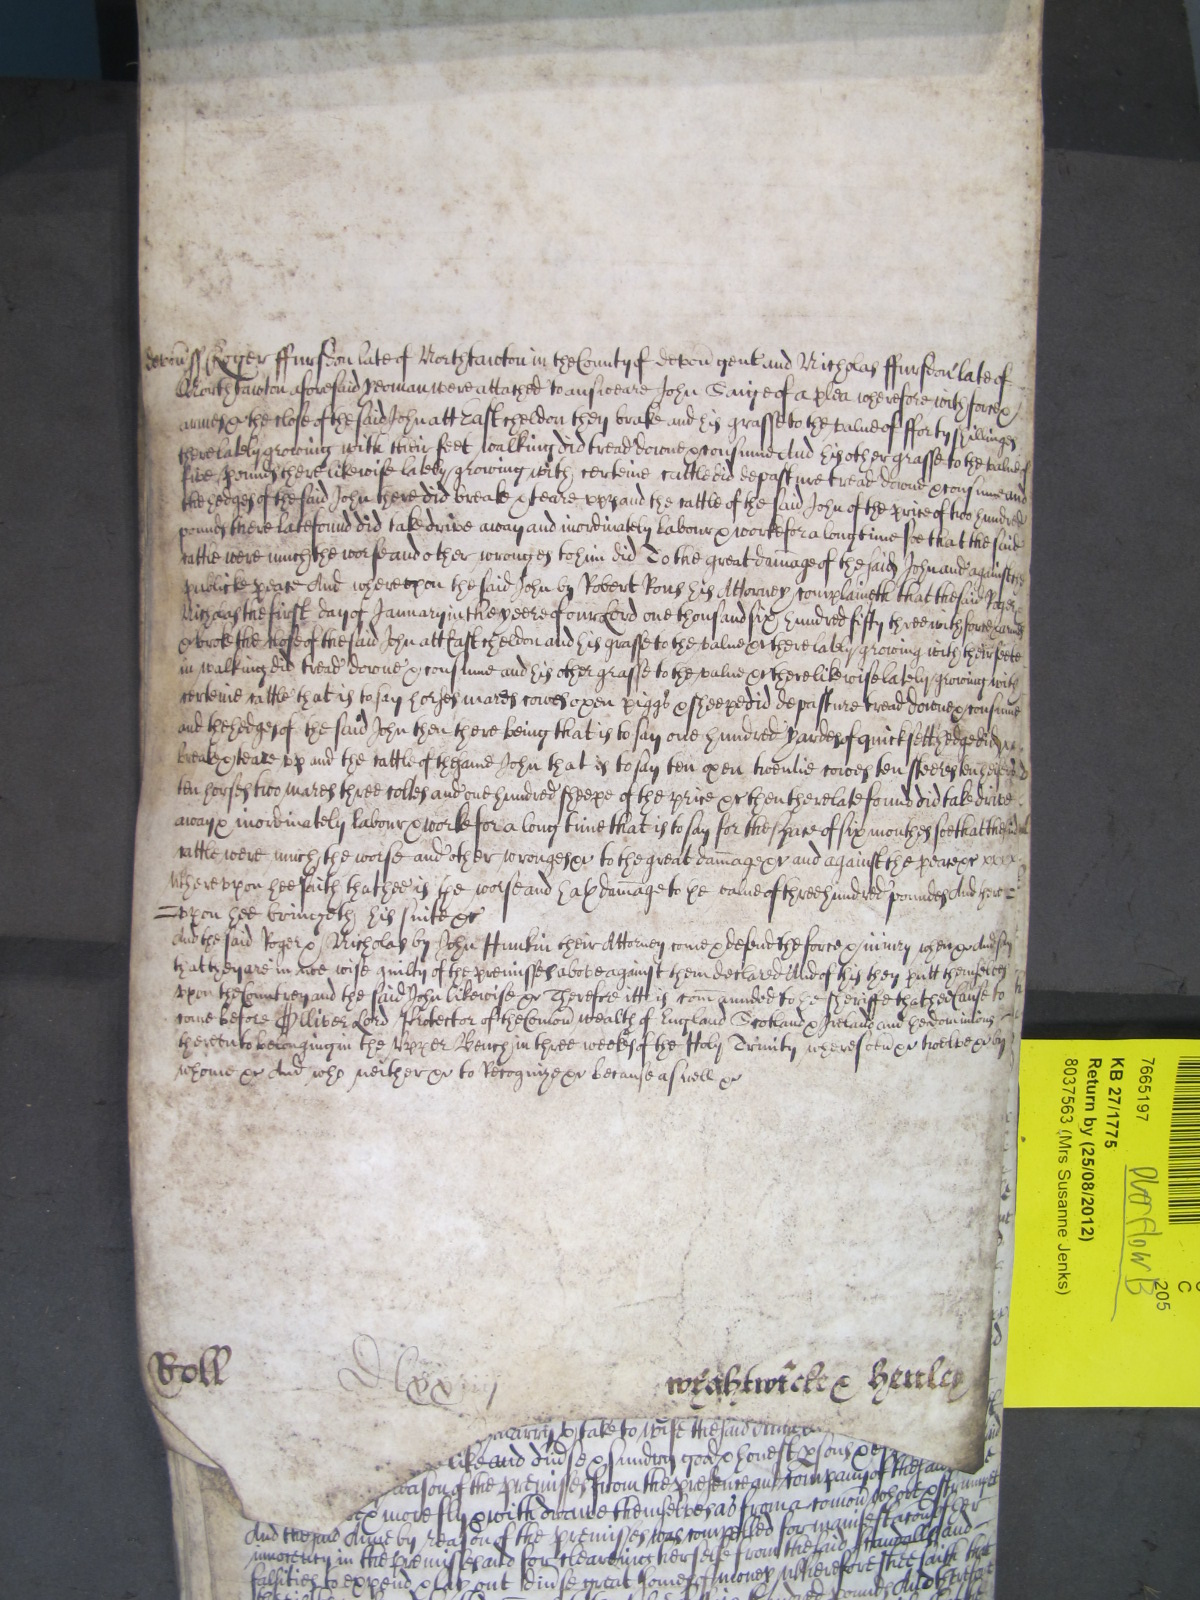 devon ss Roger ffursdon late of Northtawton in the County of devon gent and Nicholas ffursdon late of
Northtawton aforesaid yeoman were attached to answeare John Sauge of a plea wherefore with force &
armes &c the close of the said John att East cheldon they brake and his grasse to the value of fforty shillinges
there lately growing with their feet walking did tread downe & consume And his other grasse to the value of
five pounds there likewise lately growing with certeine cattle did depasture tread downe & consume and
the hedges of the said John there did break & teare upp and the cattle of the said John of the price of two hundred
pounds there late found did take drive away and inordinately labour & worke for a long time soe that the said
cattle were much the worse and other wronges to him did To the great damage of the said John and against the
publicke peace And whereupon the said John by Robert Rous his Attorney complaineth that the said Roger &
Nicholas the first day of January in the yeere of our Lord one thousand six hundred fifty three with force & armes
&c broke the close of the said John att East cheldon and his grasse to the value &c there lately growing with their feete
in walking did tread downe & consume and his other grasse to the value &c there likewise lately growing with
certeine cattle that is to say horses mares cowes oxen piggs & sheepe did depasture tread downe & consume
and the hedges of the said John then there being that is to say one hundred yardes of quicksett hedge did
breake & teare up and the cattle of the same John that is to say ten oxen twentie cowes ten steeres ten heifers
ten horses two mares three coltes and one hundred sheepe of the price &c then there late found did take drive
away & inordinately labour & worke for a long time that is to say for the space of six monthes soe that the said
cattle were much the worse and other wronges &c to the great damage &c and against the peace &c
Whereupon hee saith that hee is the worse and hath damage to the value of three hundred poundes And there
upon hee bringeth his suite &c
And the said Roger & Nicholas by John Hunkin their Attorney come & defend the force & iniury when &c And say
that they are in noe wise guilty of the premisses above against them declared And of this they putt themselves
upon the Countrey and the said John likewise &c Therefore itt is comaunded to the sheriffe that he cause to
come before Olliver Lord Protector of the Comon wealth of England Scotland & Ireland and the dominions
thereunto belonging in the Upper Bench in three weekes of the Holy Trinity wheresoever &c twelve &c by
whome &c And who neither &c to Recognize &c because as well &c
Roll Dlxxiiij wightwicke & Henley
marry & take to wife the said
like and diuse & sundry good & honest psons
reason of the premisses from the presence and company of the
more fly & withdrawe themselves as from a comon whore & strumpet
And the said Anne by reason of the premises was compelled for manifestacon of her
innocency in the premisses and for clearing herselfe from the said scandalls and
falsities to expend & lay out diuse great somes of money Wherefore shee saith that
7665197
KB 27/1775
Return by (25/08/2012)
8037563 (Mrs Susanne Jenks)
Overflow B
205
C